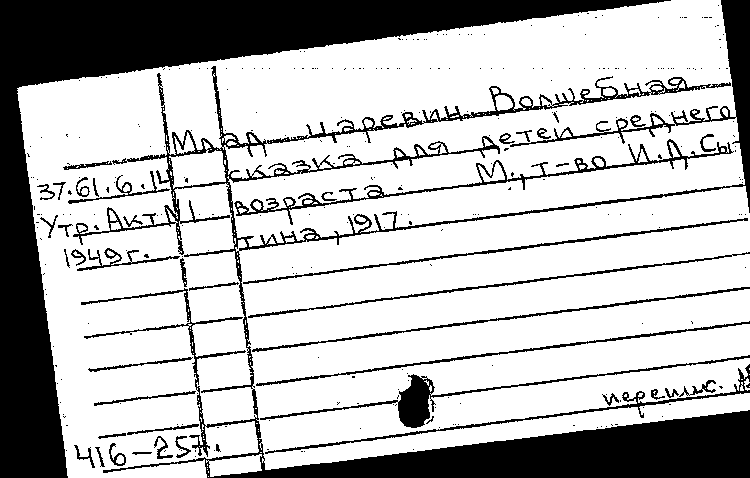 Млад царевич. Волшебная
37.61.6.14. сказка для детей среднего
Утр. Акт №1 возраста. М., т-во И.Д.Сы
1949г. тина, 1917.
перепис.
416-257.